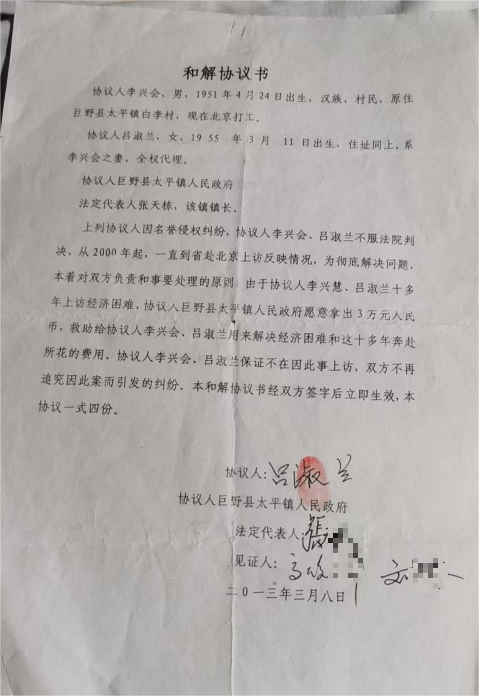 和解协议书
协议人李兴会、男，1951年4月24日出生，汉族，村民，原住
巨野县太平镇白李村，现在北京打工。
协议人吕淑兰，女，1955 年3月 11日出生，住址同上。系
李兴会之妻，全权代理。
协议人巨野县太平镇人民政府
法定代表人张天栋，该镇镇长。
上列协议人因名誉侵权纠纷，协议人李兴会、吕淑兰不服法院判
决，从2000年起，一直到省赴北京上访反映情况，为彻底解决问题，
本着对双方负责和事要处理的原则。由于协议人李兴慧、吕淑兰十多
年上访经济困难，协议人巨野县太平镇人民政府愿意拿出3万元人民
币，救助给协议人李兴会、吕淑兰用来解决经济困难和这十多年奔赴
所花的费用。协议人李兴会、吕淑兰保证不在因此事上访，双方不再
追究因此案而引发的纠纷。本和解协议书经双方签字后立即生效，本
协议一式四份。
协议人：吕淑兰
协议人巨野县太平镇人民政府
法定代表人：张
见证人：
二0一三年三月八日